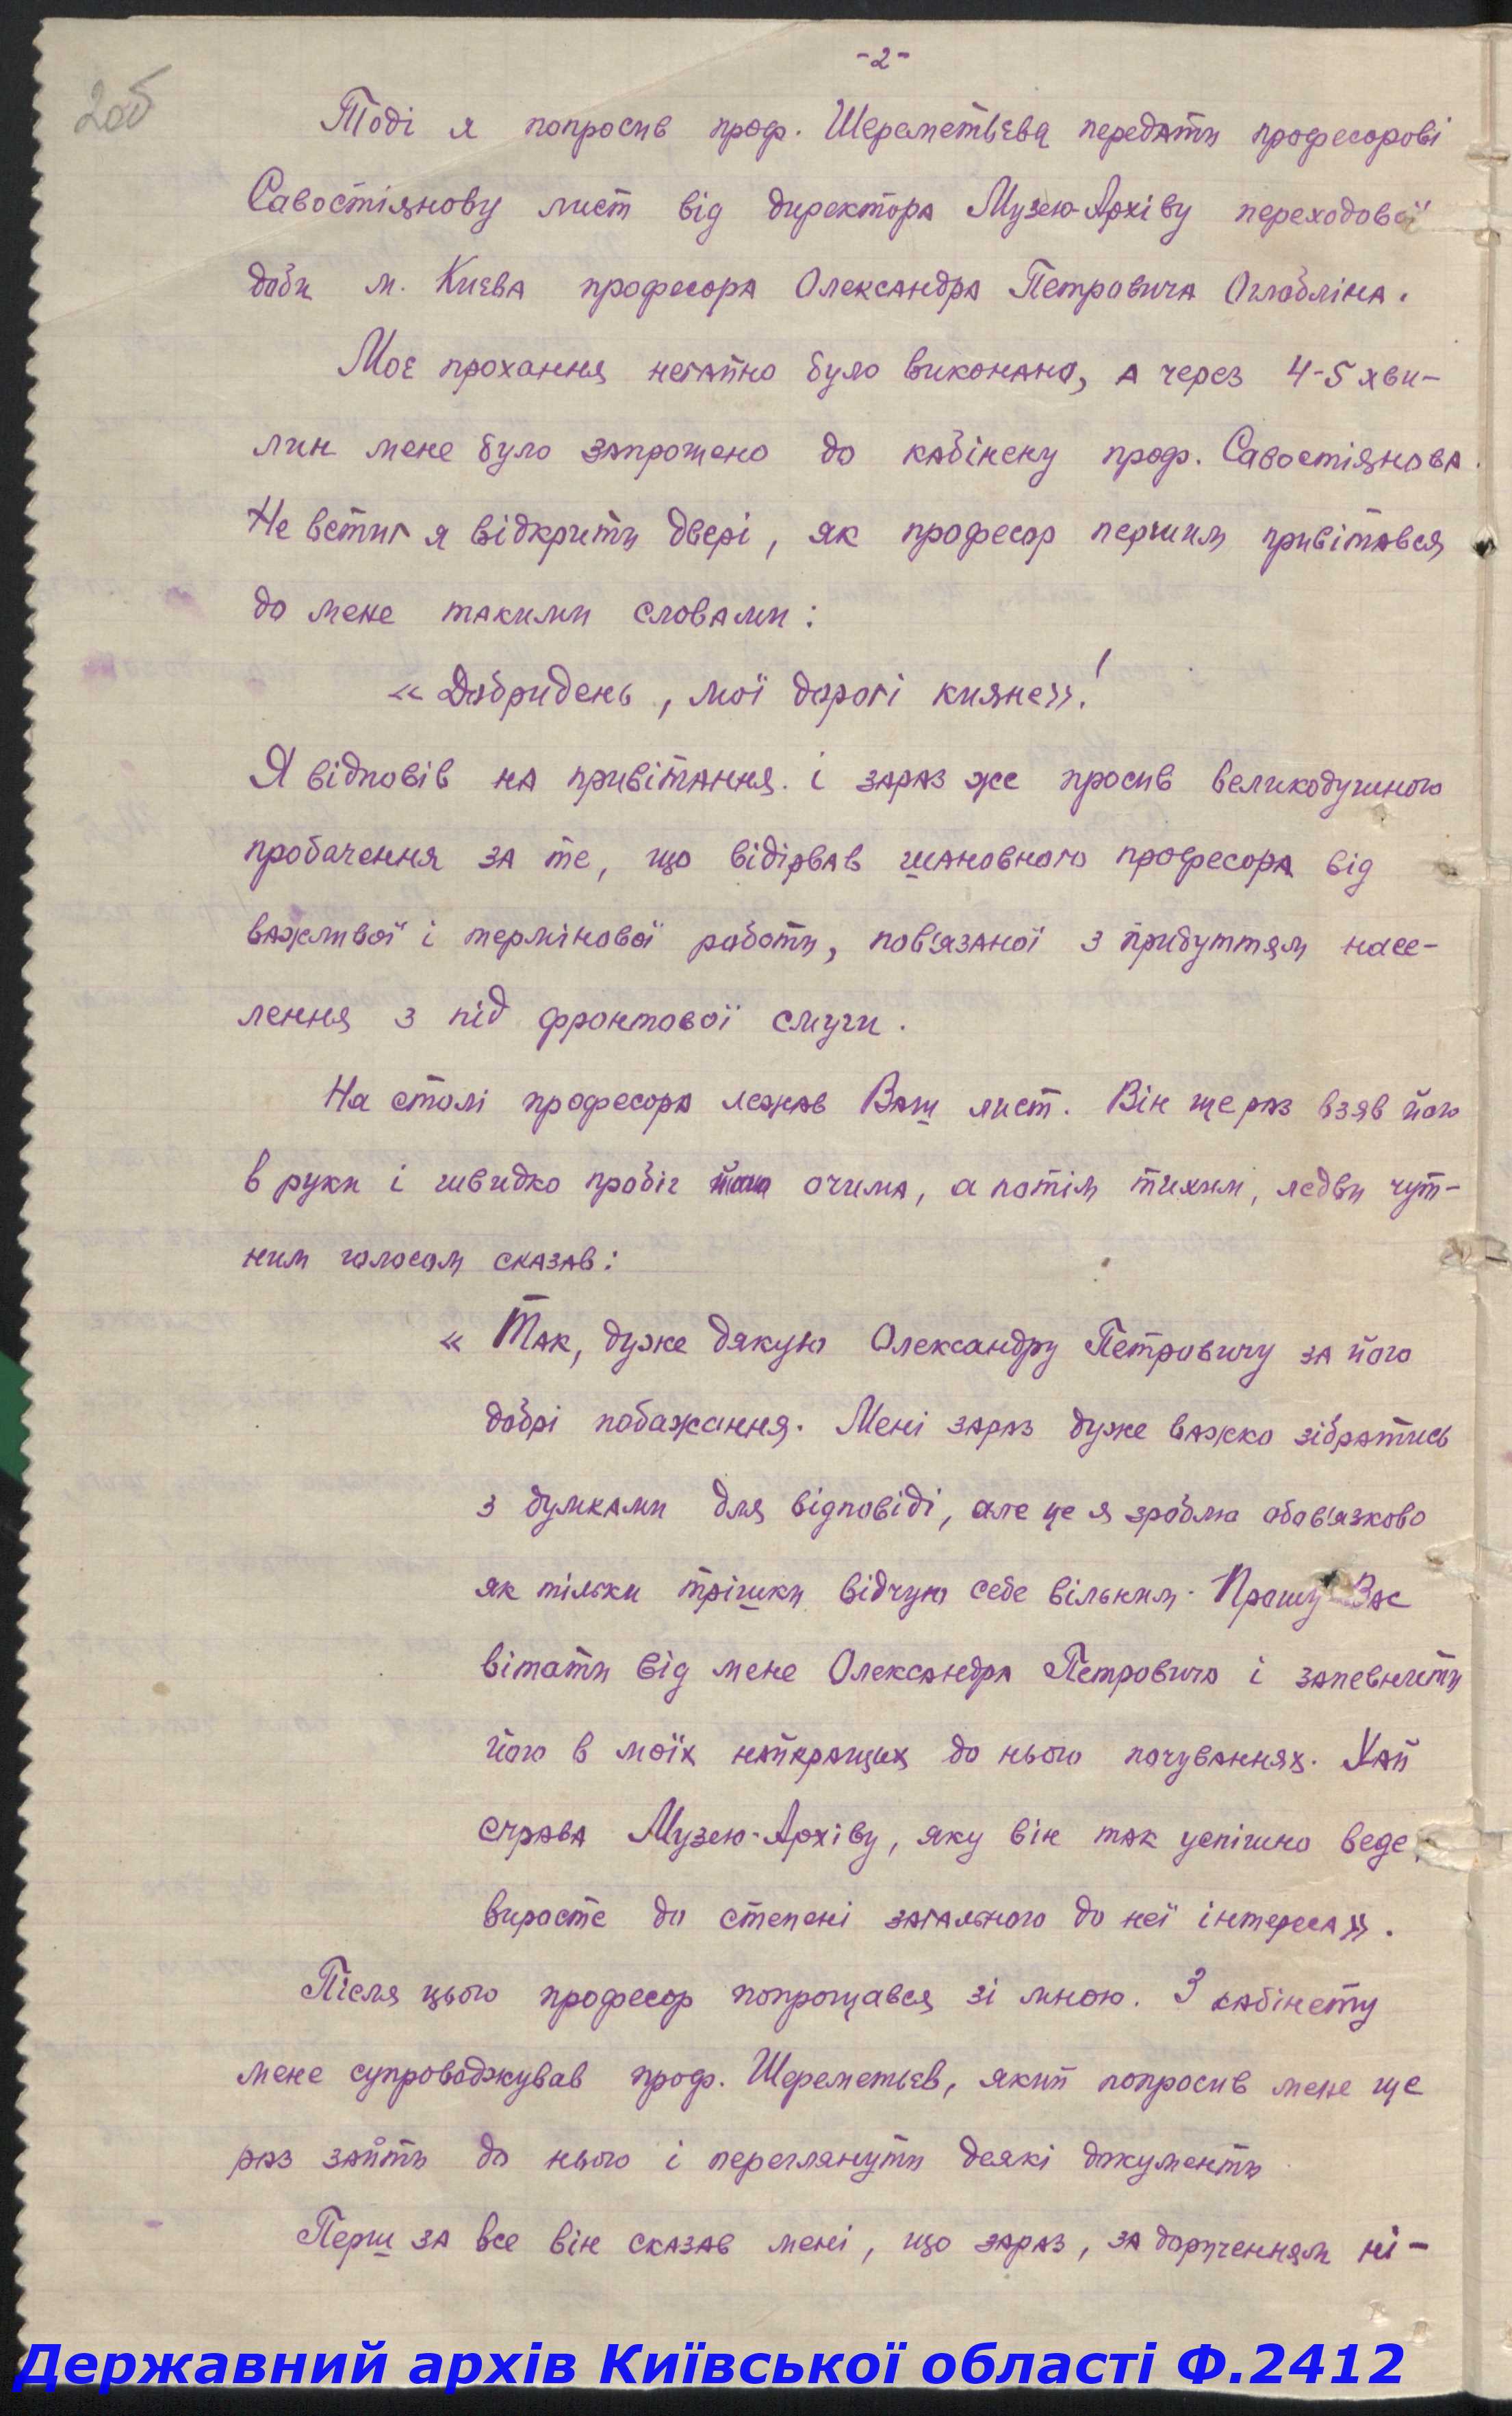 -2-
2об
Тоді я попросив проф. Шереметьєва передати професорові
Савостіянову лист від директора Музею-Архіву переходової
доби м. Києва професора Олександра Петровича Оглобліна.
Моє прохання негайно було виконано, а через 4-5 хви-
лин мене було запрошено до кабінену проф. Савостіянова.
Не встиг я відкрити двері, як професор першим привітався
до мене такими словами:
« Добридень, мої дорогі кияне»!
Я відповів на привітання. і зараз же просив великодушного
пробачення за те, що відірвав шановного професора від
важливої і термінової роботи, пов'язаної з прибуттям насе-
лення з під фронтової смуги.
На столі професора лежав Ваш лист. Він ще раз взяв його
в руки і швидко пробіг очима, а потім тихим, ледви чут-
ним голосом сказав:
« Так, дуже дякую Олександру Петровичу за його
добрі побажання. Мені зараз дуже важко зібратись
з думками для відповіді, але це я зроблю обов'язково
як тільки трішки відчую себе вільним. Прошу Вас
вітати від мене Олександра Петровича і запевнити
його в моїх найкращих до нього почуваннях. Хай
справа Музею-Архіву, яку він так успішно веде,
виросте до степені загального до неї інтереса».
Після цього професор попрощався зі мною. З кабінету
мене супроводжував проф. Шереметьєв, який попросив мене ще
раз зайти до нього і переглянути деякі документи
Перш за все він сказав мені, що зараз, за дорученням ні-
Державний архів Київської області Ф.2412